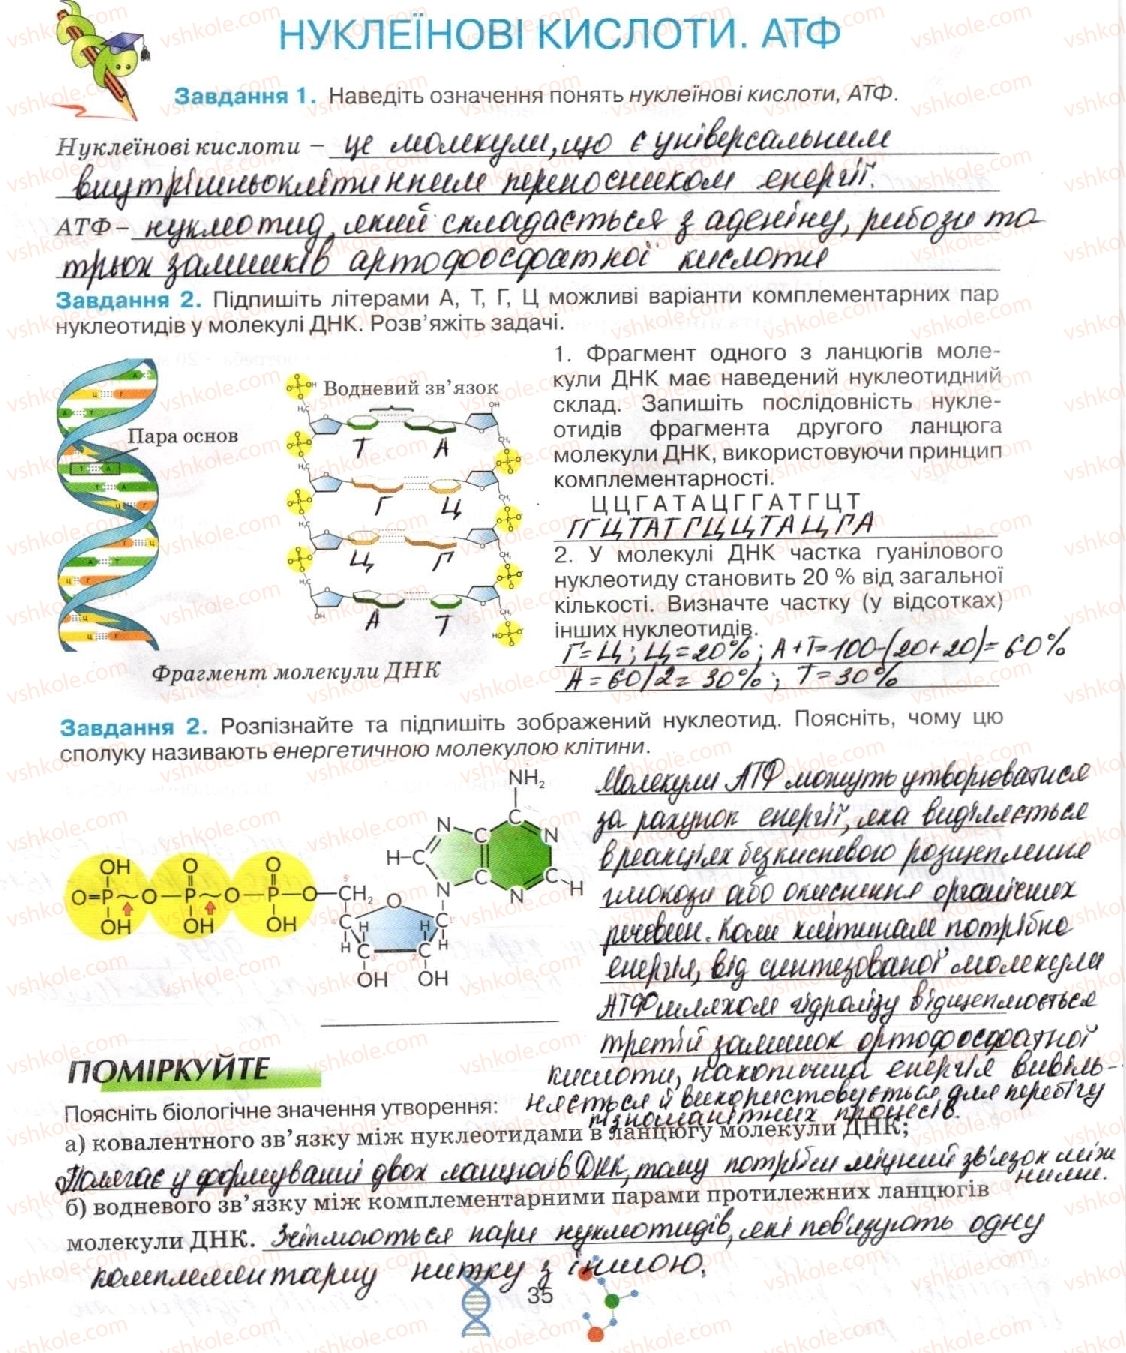 НУКЛЕЇНОВІ КИСЛОТИ. АТФ
Завдання 1. Наведіть означення понять нуклеїнові кислоти, АТФ.
Нуклеїнові кислоти – це молекули, що є універсальним
внутрішньоклітинним переносником енергії.
АТФ – нуклеотид, який складається з аденіну, рибози та
трьох залишків ортофосфатної кислоти
Завдання 2. Підпишіть літерами А, Т, Г, Ц можливі варіанти комплементарних пар
нуклеотидів у молекулі ДНК. Розв’яжіть задачі.
Водневий зв’язок
Пара основ
Т А
Г Ц
Ц Г
А Т
Фрагмент молекули ДНК
1. Фрагмент одного з ланцюгів моле-
кули ДНК має наведений нуклеотидний
склад. Запишіть послідовність нукле-
отидів фрагмента другого ланцюга
молекули ДНК, використовуючи принцип
комплементарності.
ЦЦГАТАЦГГАТГЦТ
ГГЦТАТГЦЦТАЦГА
2. У молекулі ДНК частка гуанілового
нуклеотиду становить 20 % від загальної
кількості. Визначте частку (у відсотках)
інших нуклеотидів.
Г=Ц; Ц=20%; А+Т=100-(20+20)=60%
А=60/2=30%; Т=30%
Завдання 2. Розпізнайте та підпишіть зображений нуклеотид. Поясніть, чому цю
сполуку називають енергетичною молекулою клітини.
NH₂
N C N
H–C C
C C H
N N
OH O O
O=P–O–P~O–P–O–CH₂
OH OH OH
O
H H H H
C C
OH OH
Молекули АТФ можуть утворюватися
за рахунок енергії, яка виділяється
в реакціях безкисневого розщеплення
глюкози або окиснення органічних
речовин. Коли клітинам потрібна
енергія, від синтезованої молекули
АТФ шляхом гідролізу відщеплюється
третій залишок ортофосфатної
кислоти, накопичена енергія вивіль-
няється й використовується для перебігу
різноманітних процесів.
ПОМІРКУЙТЕ
Поясніть біологічне значення утворення:
а) ковалентного зв’язку між нуклеотидами в ланцюгу молекули ДНК;
Полягає у формуванні двох ланцюгів ДНК, тому потрібен міцний зв'язок між
ними.
б) водневого зв’язку між комплементарними парами протилежних ланцюгів
молекули ДНК. Зчіплюються пари нуклеотидів, які пов'язують одну
комплементарну нитку з іншою.
35
vshkole.com